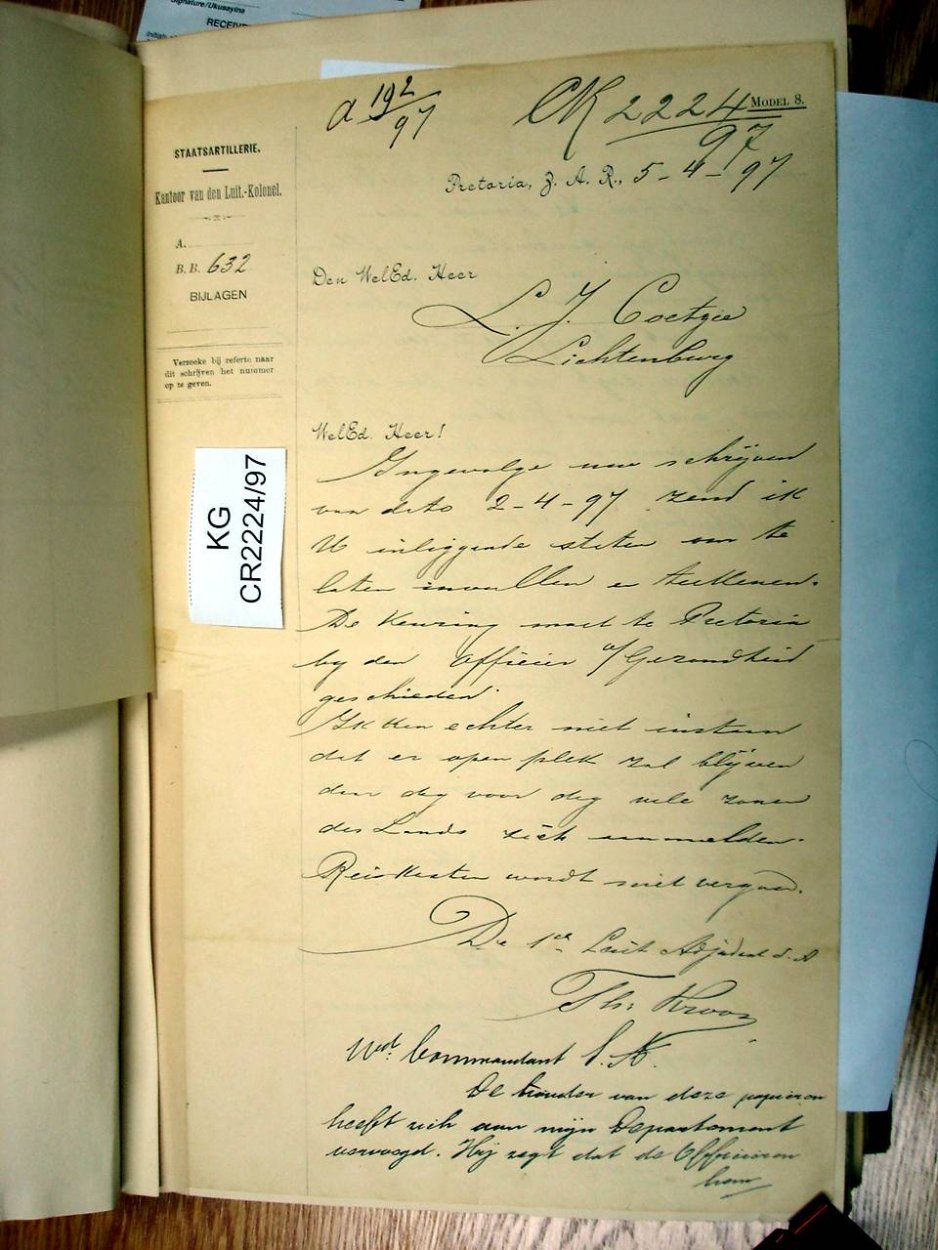 Signature/Ukusayina
a 192/97
CR 2224/97
MODEL 8.
STAATSARTILLERIE.
Kantoor van den Luit.-Kolonel.
Pretoria, Z. A. R., 5-4-97
A.
B.B. 632
BIJLAGEN
Verzoeke bij referte naar
dit schrijven het nummer
op te geven.
Den WelEd. Heer
L. J. Coetzee
Lichtenburg
WelEd. Heer!
KG
CR2224/97
Ingevolge uw schrijven
van dato 2-4-97 zend ik
U inliggende staten om te
laten invullen en teekenen.
De Keuring moet te Pretoria
by den Officier v/Gezondheid
geschieden.
Ik kan echter niet instaan
dat er open plek zal blijven
daar dag voor dag vele zonen
des Lands zich aanmelden.
Reiskosten wordt niet vergoed.
De 1ste Luit Adjudant S. A
Th:
WEd. Commandant S. A.
De houder van deze papieren
heeft zich aan mijn Departement
vervoegd. Hij zegt dat de Officieren
hem